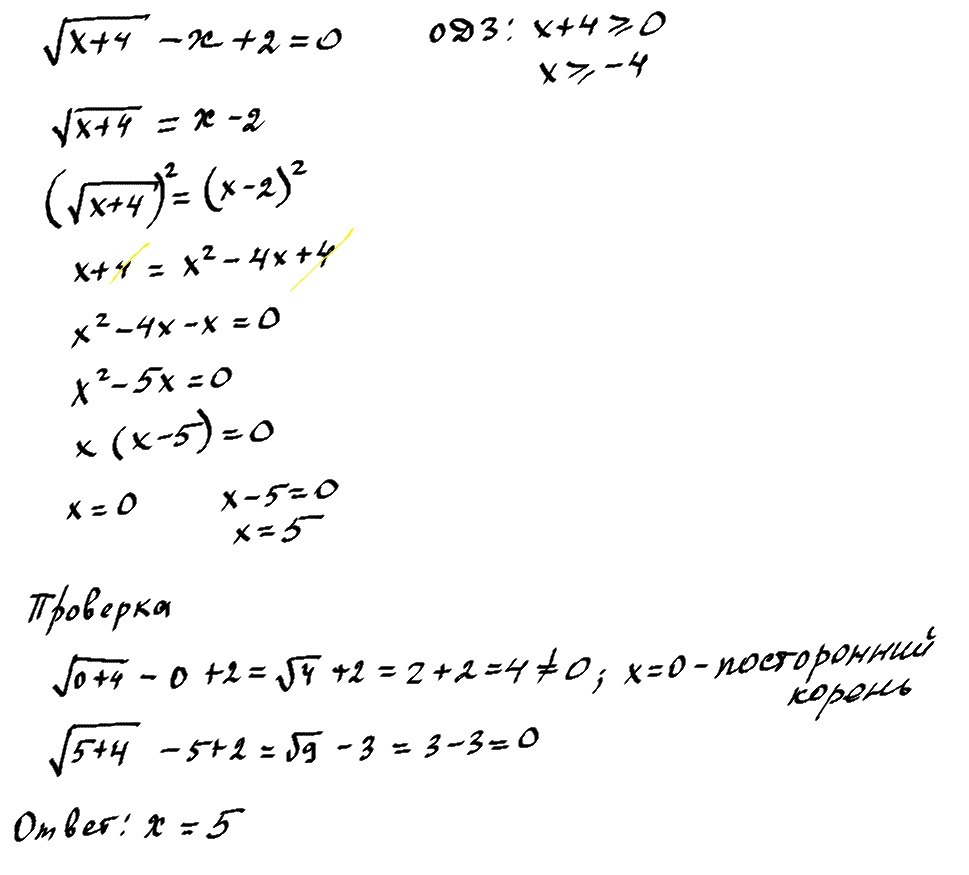 √(x+4) - x + 2 = 0    ОДЗ: x+4 ≥ 0
x ≥ -4
√(x+4) = x - 2
(√(x+4))² = (x-2)²
x+4 = x² - 4x + 4
x² - 4x - x = 0
x² - 5x = 0
x (x-5) = 0
x = 0    x - 5 = 0
x = 5
Проверка
√(0+4) - 0 + 2 = √4 + 2 = 2 + 2 = 4 ≠ 0; x=0 - посторонний
корень
√(5+4) - 5 + 2 = √9 - 3 = 3 - 3 = 0
Ответ: x = 5